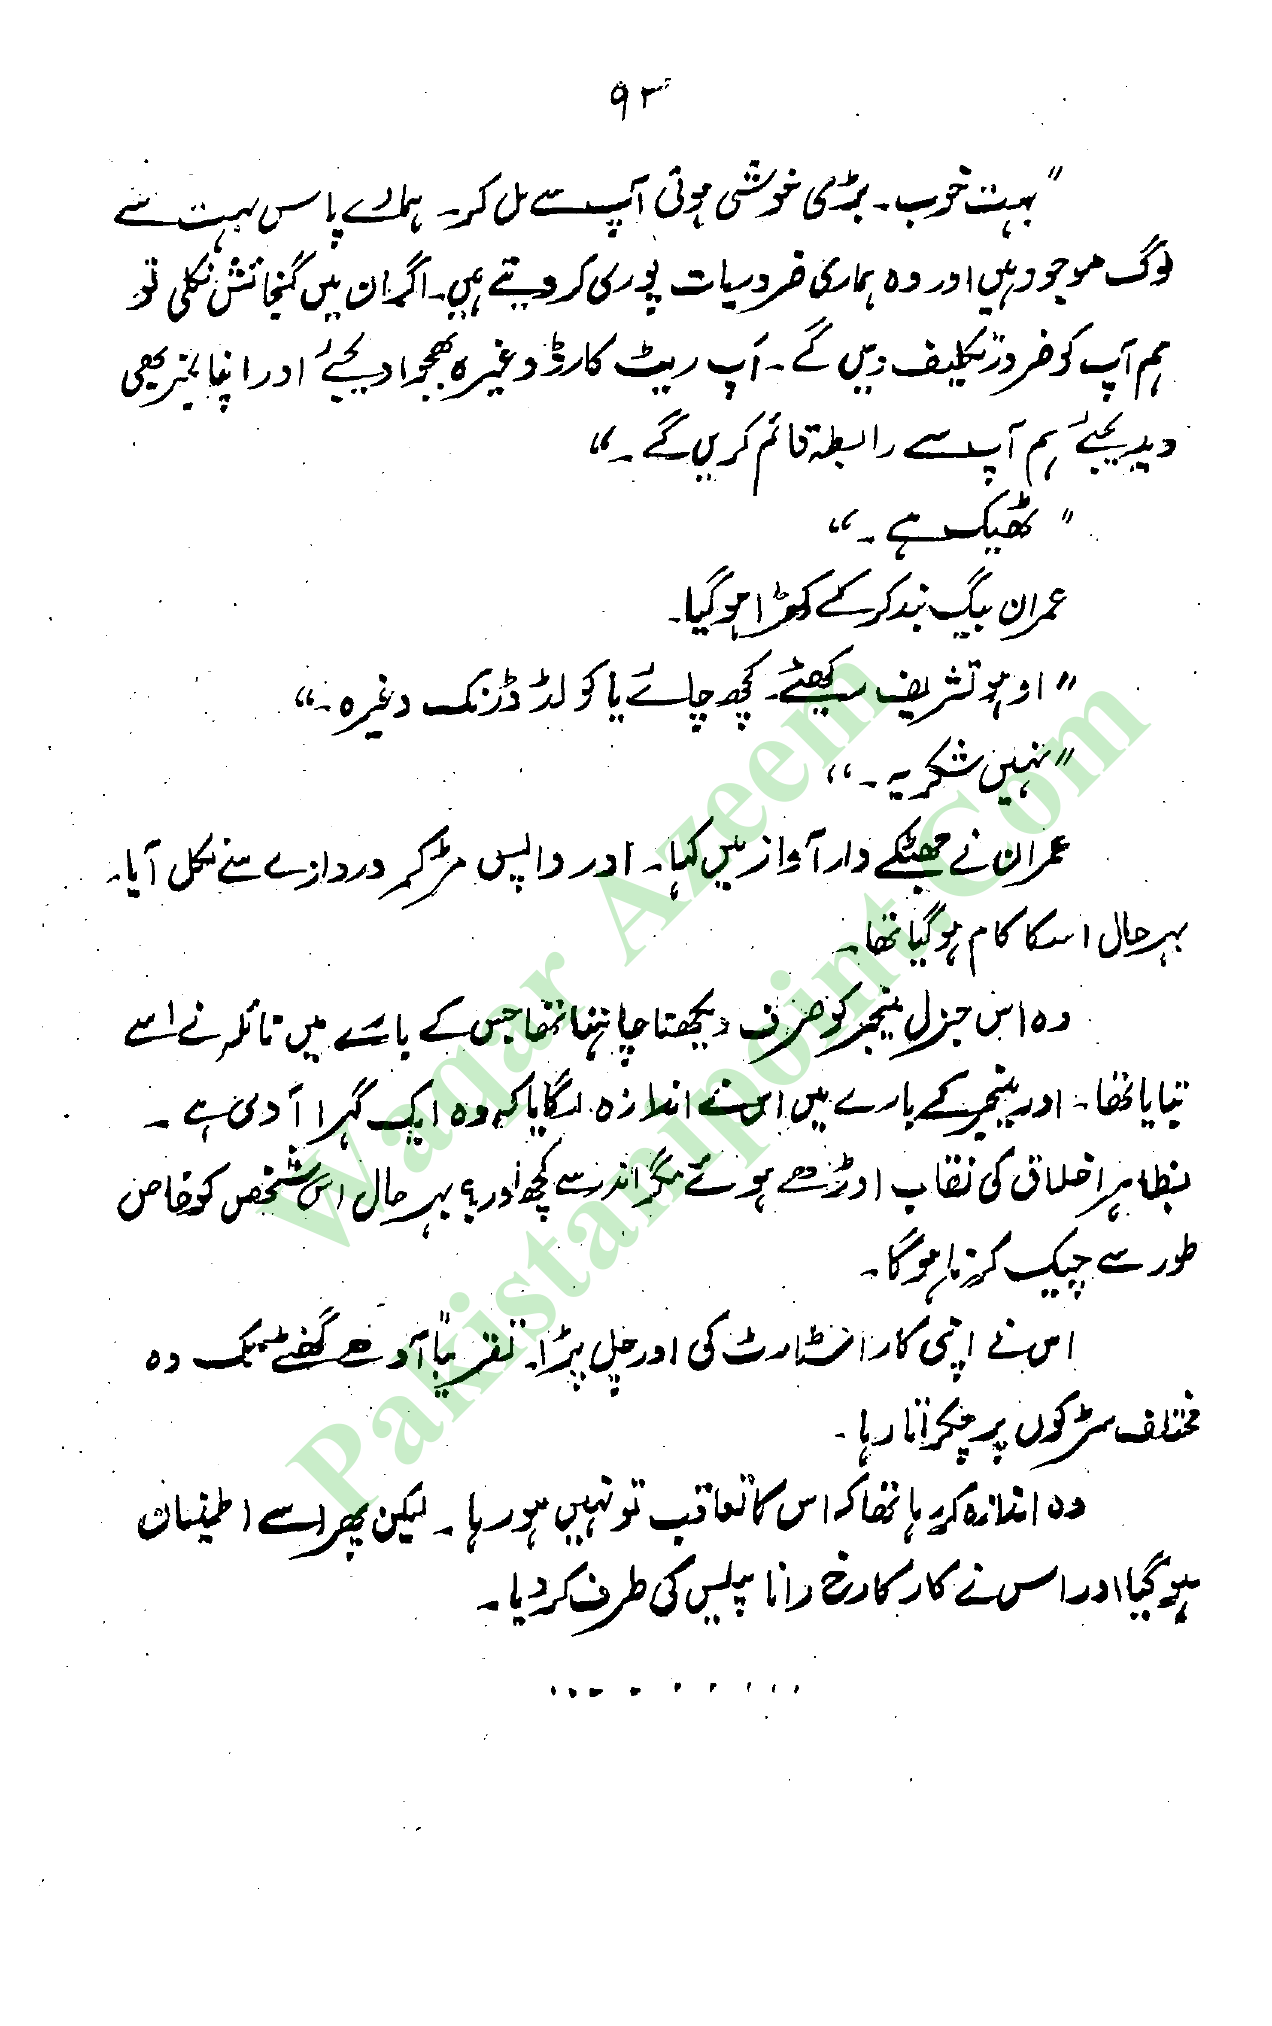 ۹۳
"بہت خوب۔ بڑی خوشی ہوئی آپ سے مل کر۔ ہمارے پاس بہت سے
لوگ موجود ہیں اور وہ ہماری ضروریات پوری کر دیتے ہیں۔ اگر ان میں گنجائش نکلی تو
ہم آپ کو ضرور تکلیف دیں گے۔ آپ ریٹ کارڈ وغیرہ بھجوا دیجئے اور اپنا نمبر بھی
دیدیجئے ہم آپ سے رابطہ قائم کریں گے۔"
"ٹھیک ہے۔"
عمران بیگ بند کر کے کھڑا ہو گیا۔
"اوہو تشریف رکھئے۔ کچھ چائے یا کولڈ ڈرنک وغیرہ۔"
"نہیں شکریہ۔"
عمران نے جھٹکے دار آواز میں کہا۔ اور واپس مڑ کر دروازے سے نکل آیا۔
بہرحال اسکا کام ہو گیا تھا۔
وہ اس جنرل مینجر کو صرف دیکھنا چاہتا تھا جس کے بارے میں نائلہ نے اسے
بتایا تھا۔ اور مینجر کے بارے میں اس نے اندازہ لگایا کہ وہ ایک گہرا آدمی ہے۔
بظاہر اخلاق کی نقاب اوڑھے ہوئے مگر اندر سے کچھ اور؟ بہرحال اس شخص کو خاص
طور سے چیک کرنا ہو گا۔
اس نے اپنی کار اسٹارٹ کی اور چل پڑا۔ تقریباً آدھے گھنٹے تک وہ
مختلف سڑکوں پر چکراتا رہا۔
وہ اندازہ کر رہا تھا کہ اس کا تعاقب تو نہیں ہو رہا۔ لیکن پھر اسے اطمینان
ہو گیا اور اس نے کار کا رخ رانا پیلس کی طرف کر دیا۔
..........
Waqar Azeem
Pakistanipoint.Com